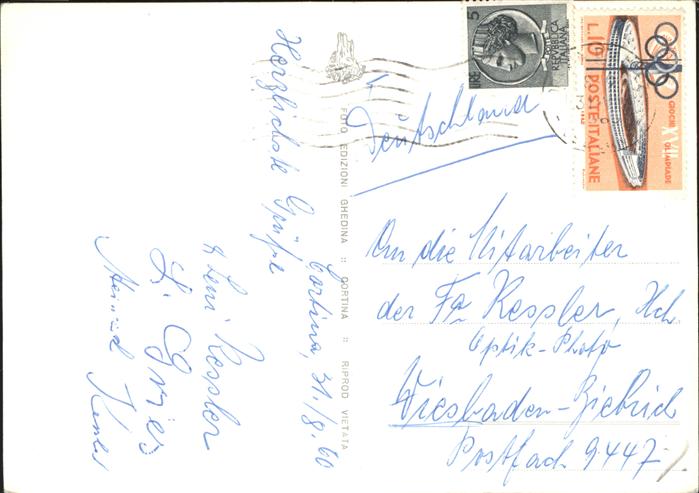 Cortina, 31./8.60
Herzlichste Grüße
& Leni Kessler
Heinrich
FOTO EDIZIONI GHEDINA :: CORTINA :: RIPROD VIETATA
LIRE 5
POSTE
REPVBBLICA
ITALIANA
L.10
POSTE ITALIANE
GIOCHI
XVII
OLIMPIADE
Deutschland
An die Mitarbeiter
der Fa Kessler, Hch.
Optik-Photo
Wiesbaden-Biebrich
Postfach 9447